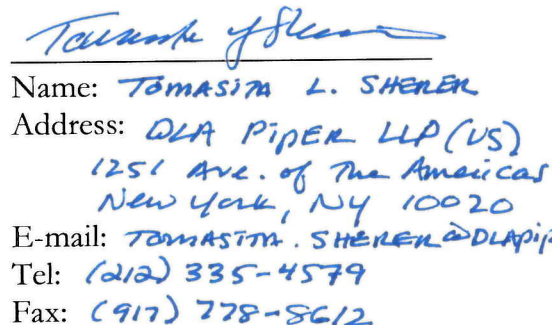 Name: TOMASITA L. SHERER
Address: DLA PIPER LLP (US)
1251 Ave. of The Americas
New York, NY 10020
E-mail: TOMASITA.SHERER@DLApip
Tel: (212) 335-4579
Fax: (917) 778-8612